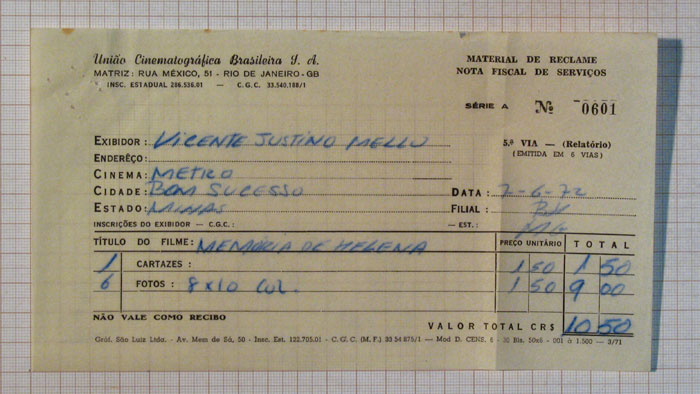 União Cinematográfica Brasileira S. A.
MATRIZ: RUA MÉXICO, 51 - RIO DE JANEIRO-GB
INSC. ESTADUAL 286.536.01 — C.G.C. 33.540.188/1
MATERIAL DE RECLAME
NOTA FISCAL DE SERVIÇOS
SÉRIE A Nº 0601
EXIBIDOR: VICENTE JUSTINO MELLO
5.ª VIA — (Relatório)
(EMITIDA EM 6 VIAS)
ENDERÊÇO:
CINEMA: METRO
CIDADE: BOM SUCESSO DATA: 2-6-72
ESTADO: MINAS FILIAL: B.H
INSCRIÇÕES DO EXIBIDOR — C.G.C.: — EST.: MG
TÍTULO DO FILME: MEMÓRIA DE HELENA PREÇO UNITÁRIO TOTAL
1 CARTAZES: 1 50 1 50
6 FOTOS: 8x10 COL. 1 50 9 00
NÃO VALE COMO RECIBO
VALOR TOTAL CR$ 10 50
Gráf. São Luiz Ltda. - Av. Mem de Sá, 50 - Insc. Est. 122.705.01 - C.G.C. (M.F.) 33 54 875/1 — Mod D. CENS. 6 - 30 Bls. 50x6 - 001 à 1.500 — 3/71